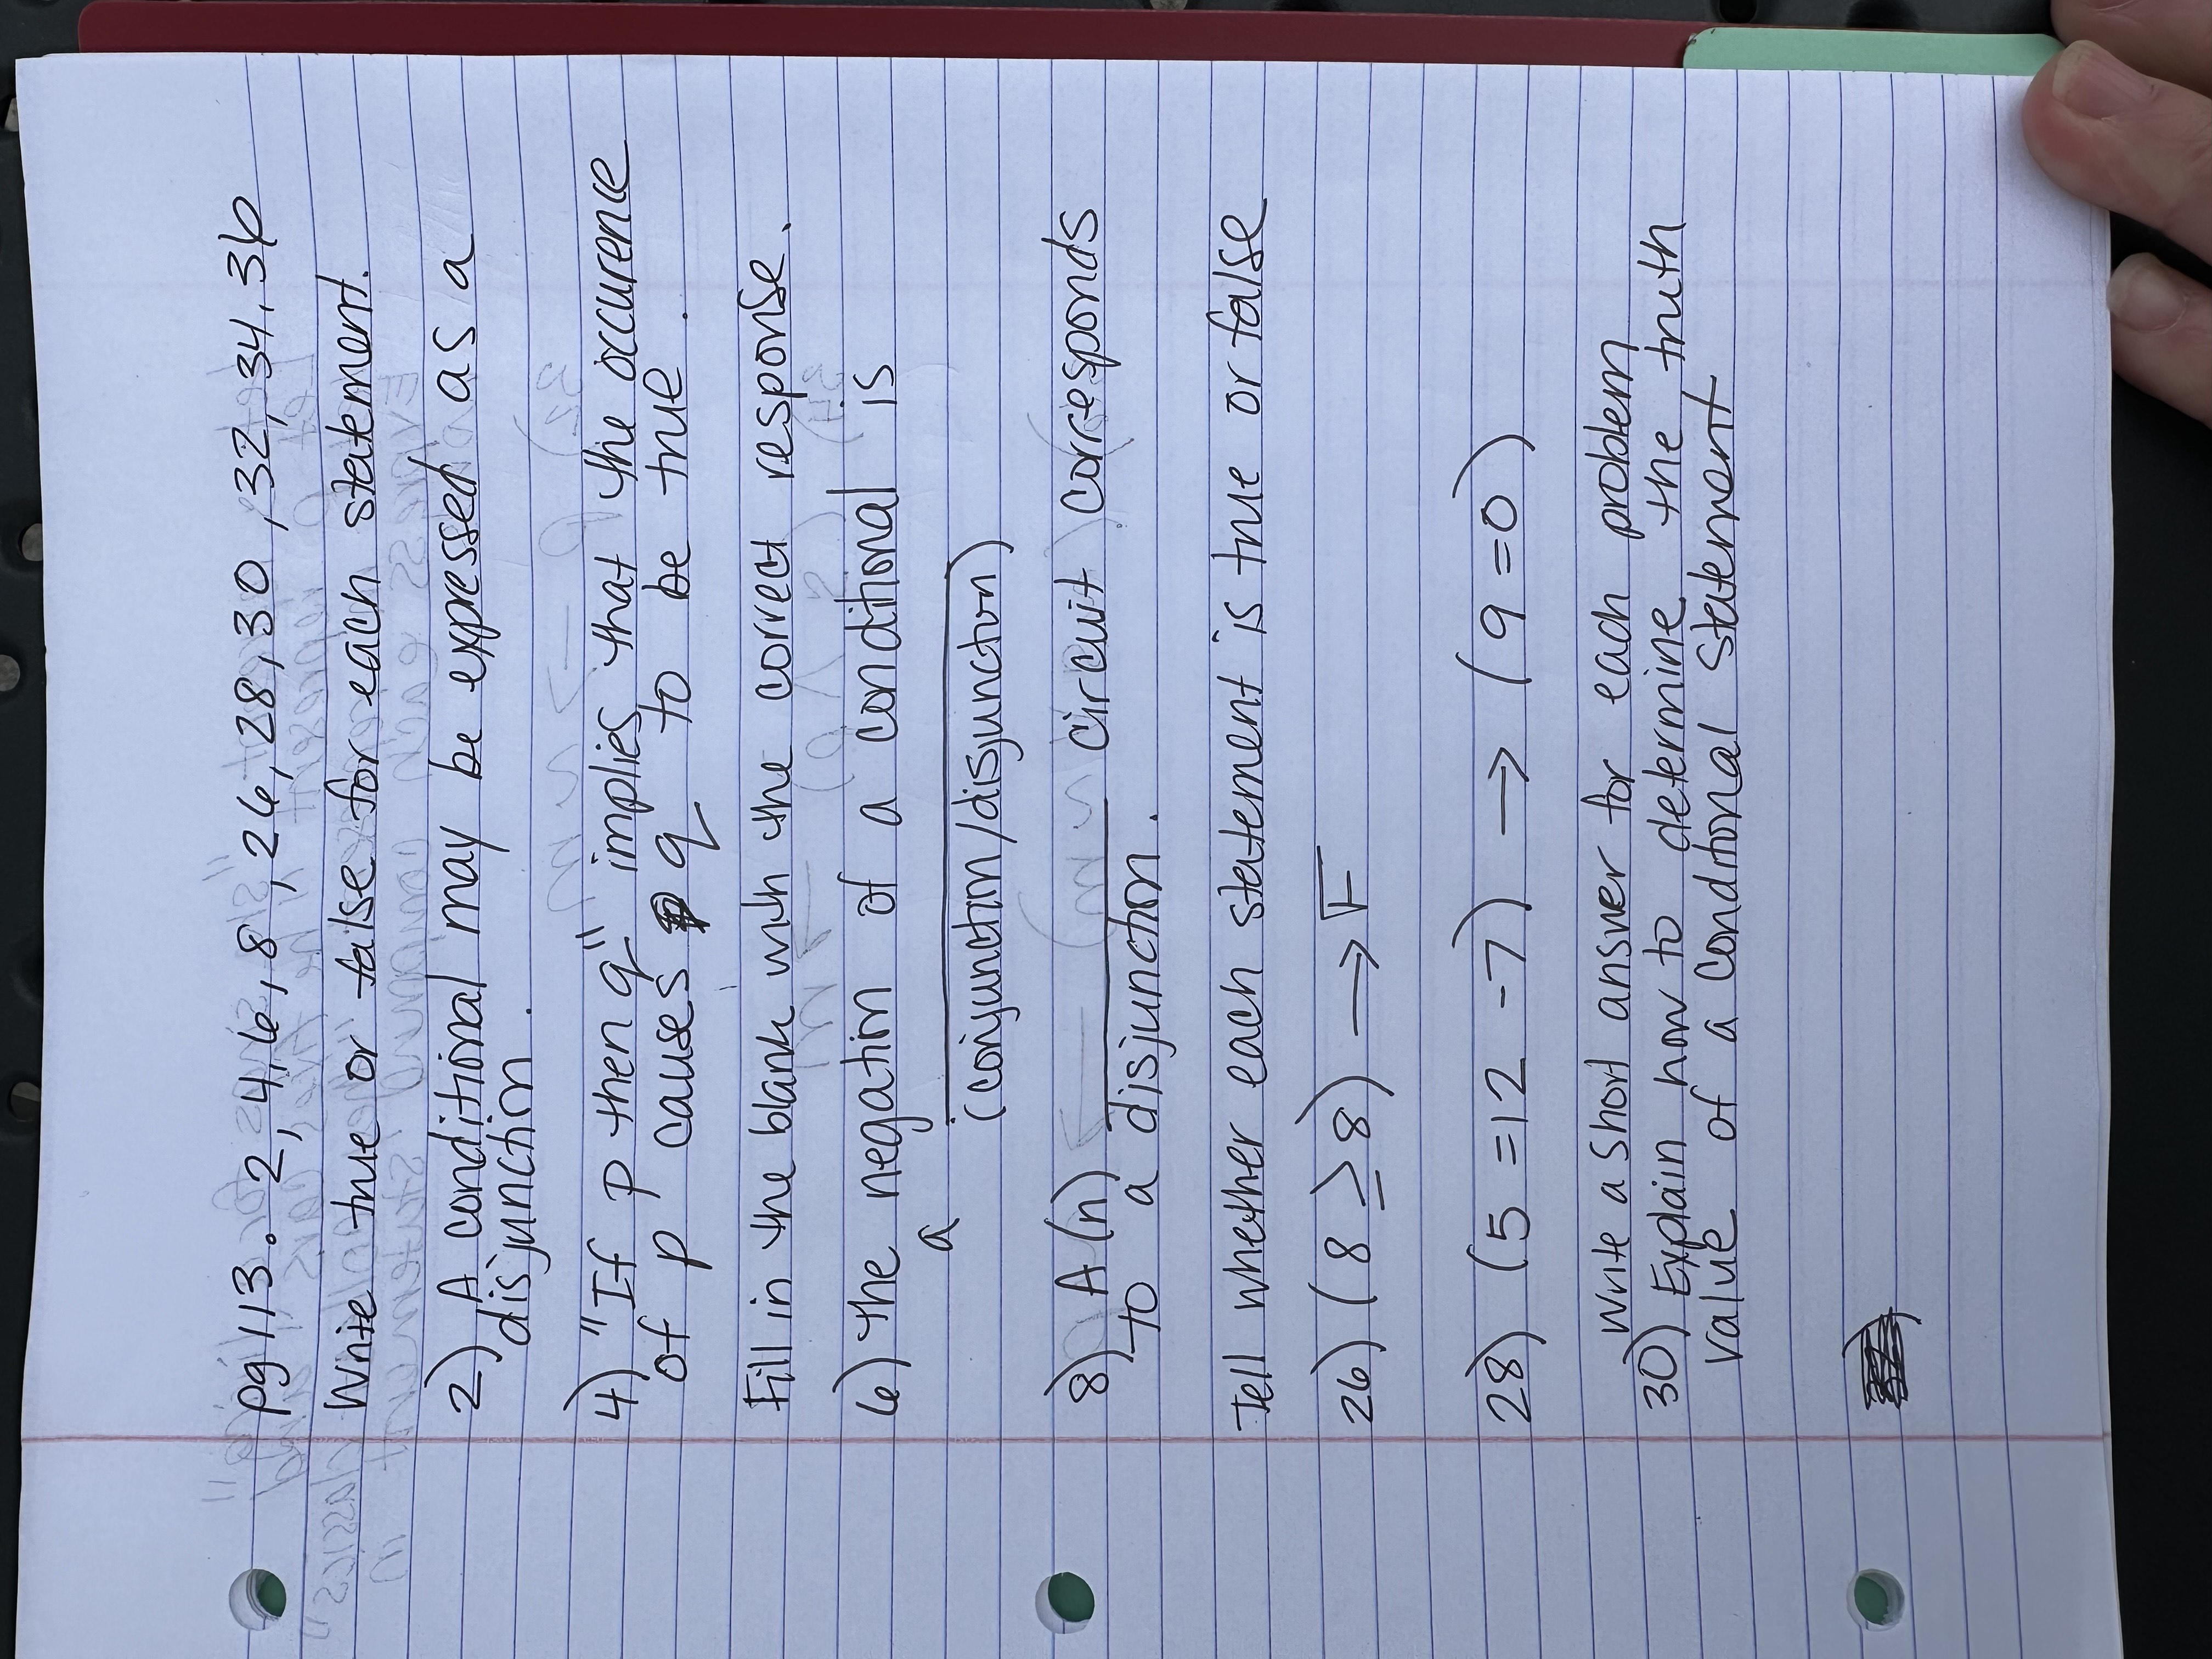 pg 113. 2, 4, 6, 8, 26, 28, 30, 32, 34, 36
Write true or false for each statement.
2) A conditional may be expressed as a
disjunction.
4) "If p then q" implies that the occurence
of p causes q to be true.
Fill in the blank with the correct response.
6) the negation of a conditional is
a ________
(conjunction/disjunction)
8) A(n) ________ circuit corresponds
to a disjunction.
Tell whether each statement is true or false
26) (8 ≥ 8) → F
28) (5 = 12 - 7) → (9 = 0)
Write a short answer for each problem
30) Explain how to determine the truth
value of a conditional statement